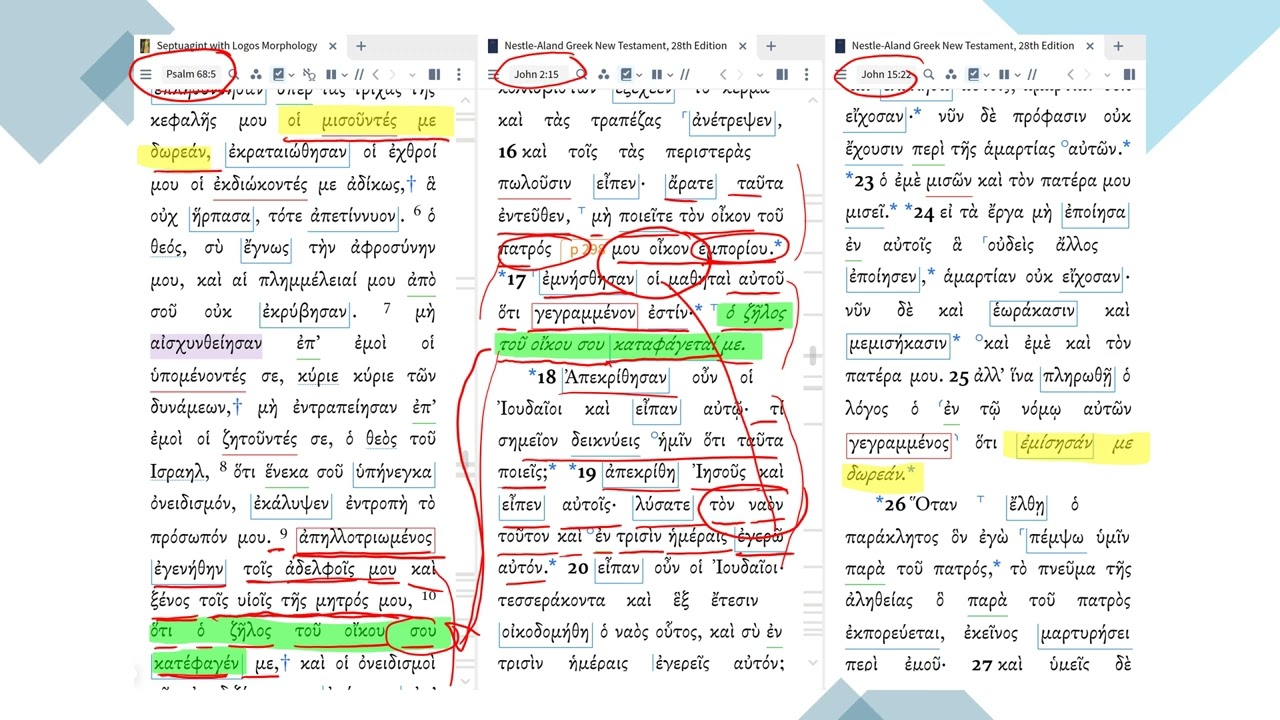 Septuagint with Logos Morphology
Psalm 68:5
ἐπληθύνθησαν ὑπὲρ τὰς τρίχας τῆς
κεφαλῆς μου οἱ μισοῦντές με
δωρεάν, ἐκραταιώθησαν οἱ ἐχθροί
μου οἱ ἐκδιώκοντές με ἀδίκως,† ἃ
οὐχ ἥρπασα, τότε ἀπετίννυον. 6 ὁ
θεός, σὺ ἔγνως τὴν ἀφροσύνην
μου, καὶ αἱ πλημμέλειαί μου ἀπὸ
σοῦ οὐκ ἐκρύβησαν. 7 μὴ
αἰσχυνθείησαν ἐπ’ ἐμοὶ οἱ
ὑπομένοντές σε, κύριε κύριε τῶν
δυνάμεων,† μὴ ἐντραπείησαν ἐπ’
ἐμοὶ οἱ ζητοῦντές σε, ὁ θεὸς τοῦ
Ισραηλ, 8 ὅτι ἕνεκα σοῦ ὑπήνεγκα
ὀνειδισμόν, ἐκάλυψεν ἐντροπὴ τὸ
πρόσωπόν μου. 9 ἀπηλλοτριωμένος
ἐγενήθην τοῖς ἀδελφοῖς μου καὶ
ξένος τοῖς υἱοῖς τῆς μητρός μου, 10
ὅτι ὁ ζῆλος τοῦ οἴκου σου
κατέφαγέν με,† καὶ οἱ ὀνειδισμοὶ
Nestle-Aland Greek New Testament, 28th Edition
John 2:15
ἐξέχεεν τὸ κέρμα
καὶ τὰς τραπέζας ⸀ἀνέτρεψεν,
16 καὶ τοῖς τὰς περιστερὰς
πωλοῦσιν εἶπεν· ἄρατε ταῦτα
ἐντεῦθεν, ⸆ μὴ ποιεῖτε τὸν οἶκον τοῦ
πατρός p 298 μου οἶκον ἐμπορίου.*
*17 ἐμνήσθησαν οἱ μαθηταὶ αὐτοῦ
ὅτι γεγραμμένον ἐστίν·* ⸆ ὁ ζῆλος
τοῦ οἴκου σου καταφάγεταί με.
*18 Ἀπεκρίθησαν οὖν οἱ
Ἰουδαῖοι καὶ εἶπαν αὐτῷ· τί
σημεῖον δεικνύεις °ἡμῖν ὅτι ταῦτα
ποιεῖς;* *19 ἀπεκρίθη Ἰησοῦς καὶ
εἶπεν αὐτοῖς· λύσατε τὸν ναὸν
τοῦτον καὶ °ἐν τρισὶν ἡμέραις ἐγερῶ
αὐτόν.* 20 εἶπαν οὖν οἱ Ἰουδαῖοι·
τεσσεράκοντα καὶ ἓξ ἔτεσιν
οἰκοδομήθη ὁ ναὸς οὗτος, καὶ σὺ ἐν
τρισὶν ἡμέραις ἐγερεῖς αὐτόν;
Nestle-Aland Greek New Testament, 28th Edition
John 15:22
εἴχοσαν·* νῦν δὲ πρόφασιν οὐκ
ἔχουσιν περὶ τῆς ἁμαρτίας °αὐτῶν.*
*23 ὁ ἐμὲ μισῶν καὶ τὸν πατέρα μου
μισεῖ.* *24 εἰ τὰ ἔργα μὴ ἐποίησα
ἐν αὐτοῖς ἃ ⸀οὐδεὶς ἄλλος
ἐποίησεν,* ἁμαρτίαν οὐκ εἴχοσαν·
νῦν δὲ καὶ ἑωράκασιν καὶ
μεμισήκασιν* °καὶ ἐμὲ καὶ τὸν
πατέρα μου. 25 ἀλλ’ ἵνα πληρωθῇ ὁ
λόγος ὁ ⸂ἐν τῷ νόμῳ αὐτῶν
γεγραμμένος⸃ ὅτι ἐμίσησάν με
δωρεάν.*
*26 Ὅταν ⸆ ἔλθῃ ὁ
παράκλητος ὃν ἐγὼ ⸀πέμψω ὑμῖν
παρὰ τοῦ πατρός,* τὸ πνεῦμα τῆς
ἀληθείας ὃ παρὰ τοῦ πατρὸς
ἐκπορεύεται, ἐκεῖνος μαρτυρήσει
περὶ ἐμοῦ· 27 καὶ ὑμεῖς δὲ